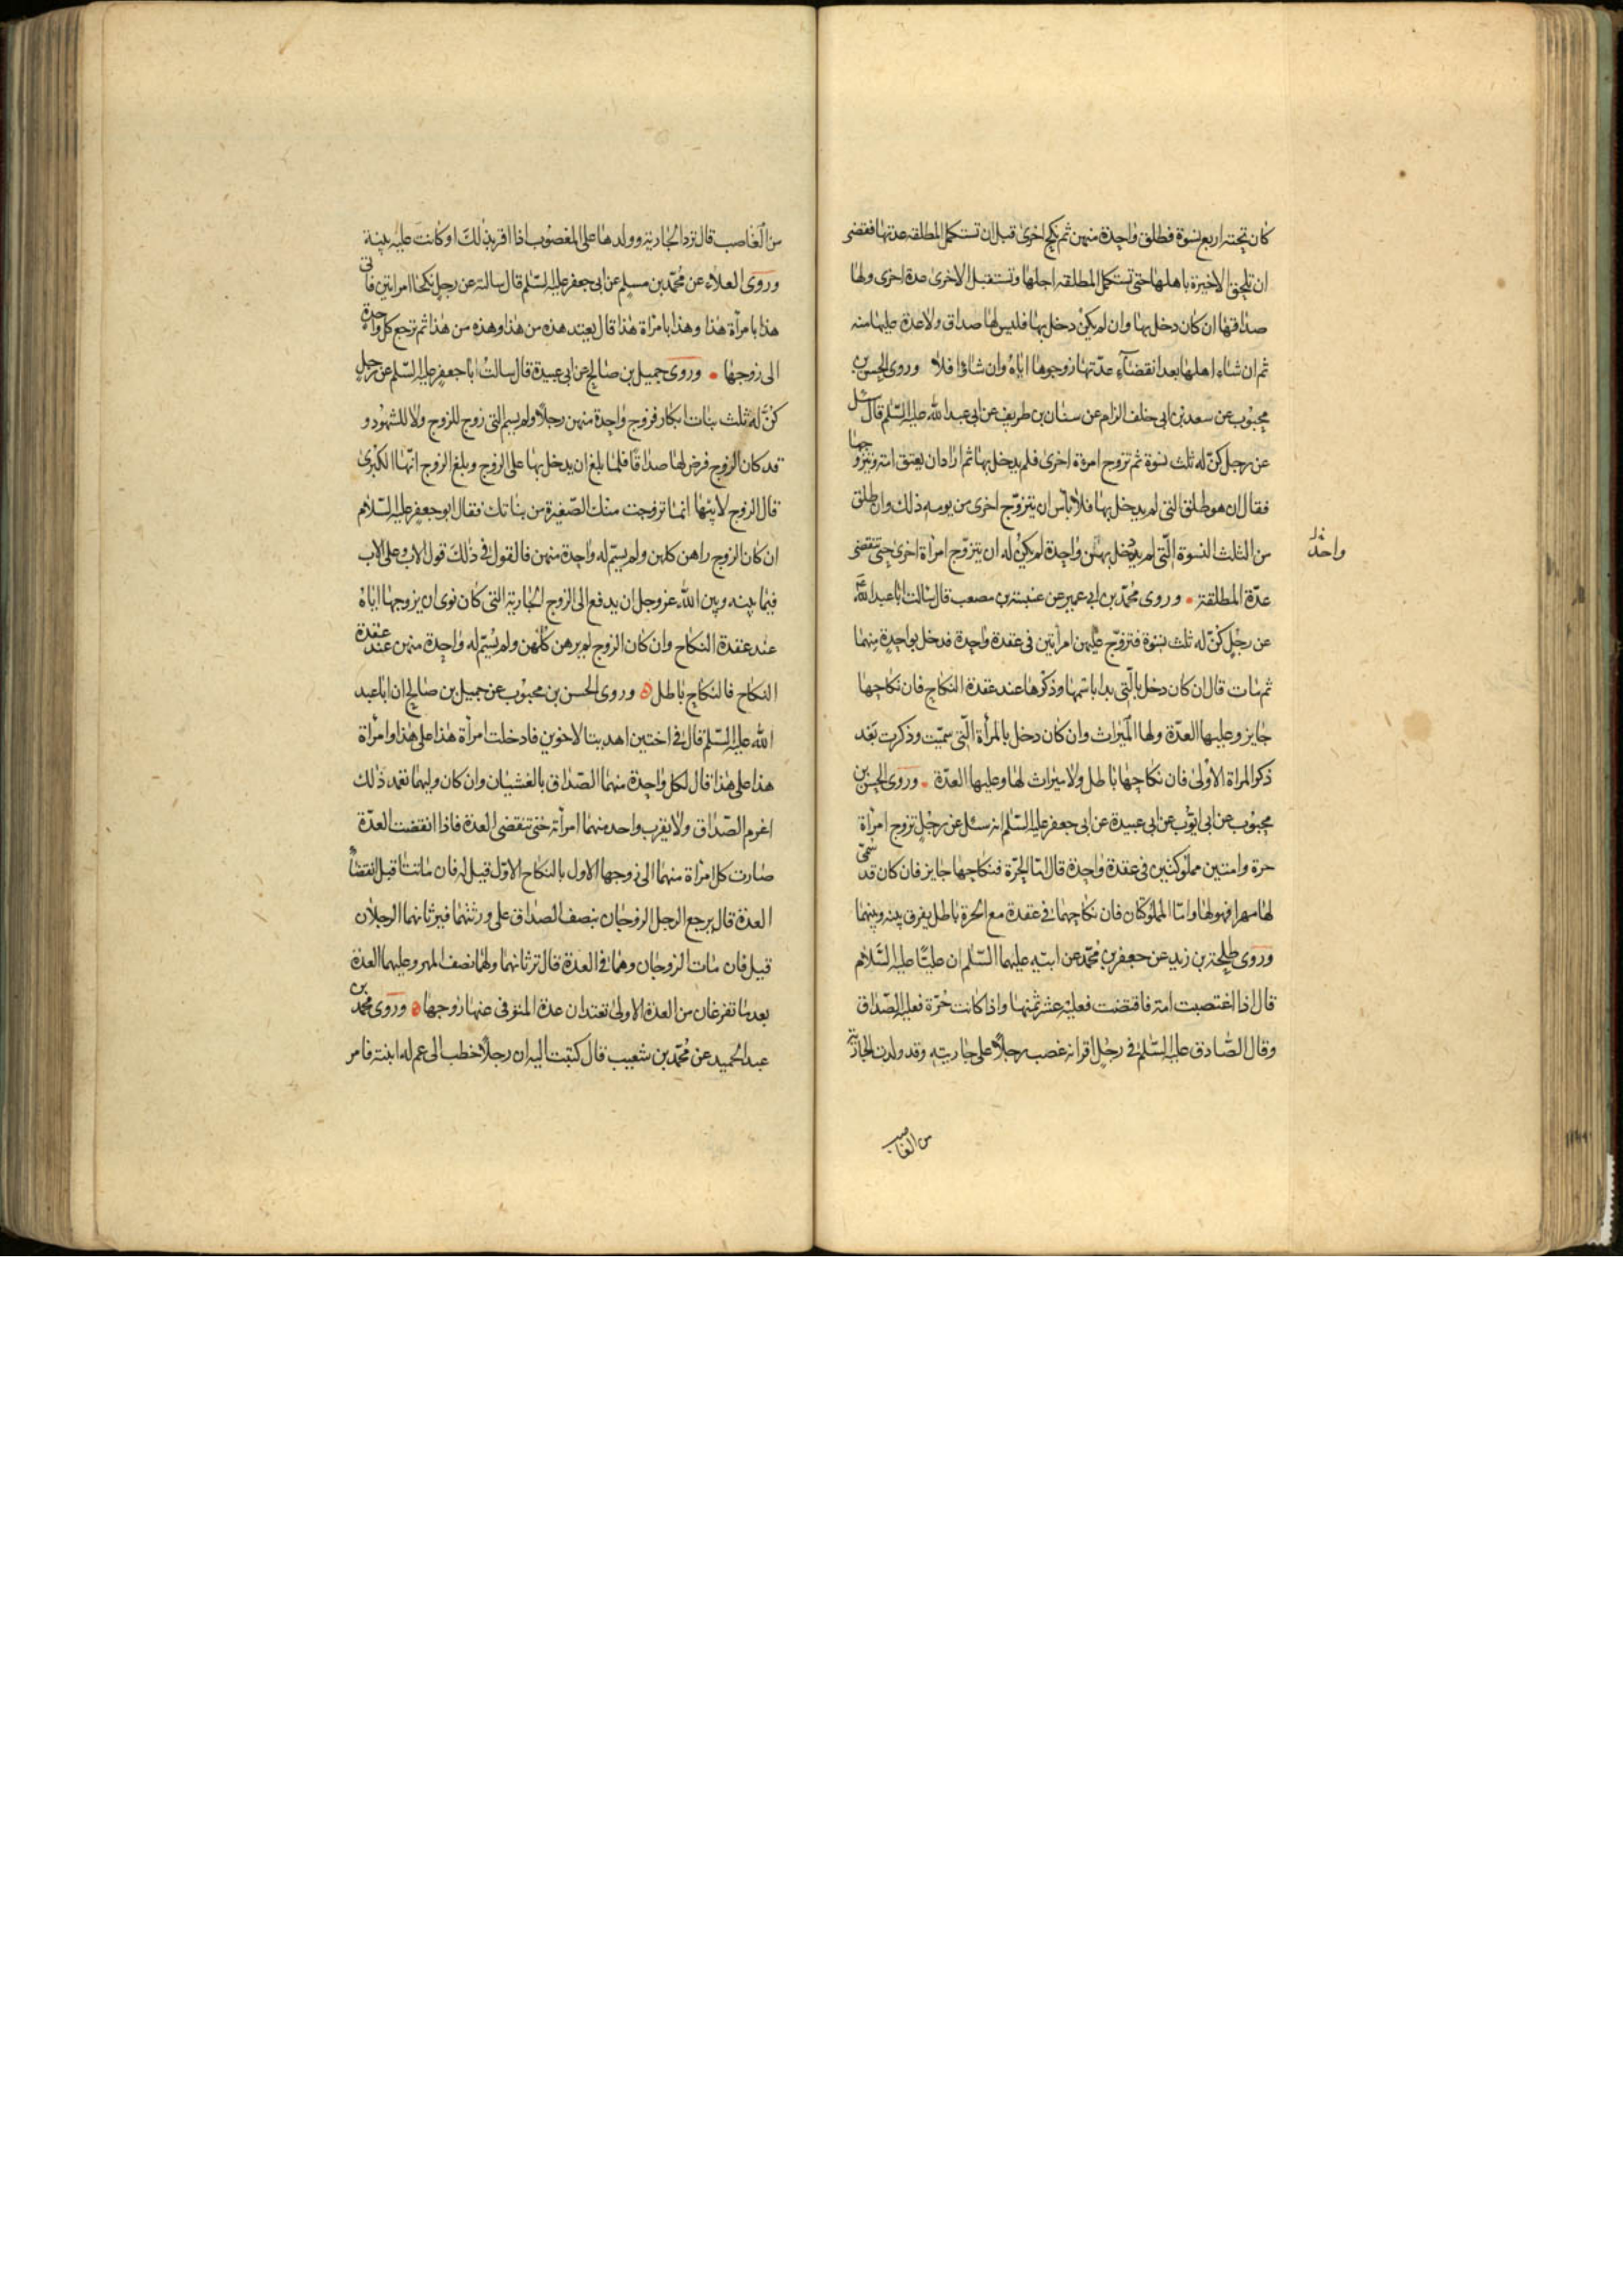 كان تحته اربع نسوة فطلق واحدة منهن ثم نكح اخرى قبل ان تستكمل المطلقه عدتها فقضى
ان تلحق الاخيرة باهلها حتى تستكمل المطلقه اجلها وتستقبل الاخرى عدة اخرى ولها
صداقها ان كان دخل بها وان لم يكن دخل بها فليس لها صداق ولا عدة عليها منه
ثم ان شاء اهلها بعد انقضاء عدتها زوجوها اياه وان شاؤا فلا وروى الحسن بن
محبوب عن سعد بن ابى خلف الزام عن سنان بن طريف عن ابى عبد الله عليه السلم قال سئل
عن رجل كنّ له ثلث نسوة ثم تزوج امرءة اخرى فلم يدخل بها ثم اراد ان يعتق امته ويتزوجها
فقال ان هو طلق التى لم يدخل بها فلا باس ان يتزوّج اخرى من يومه ذلك وان طلق
من الثلث النسوة اللتى لم يدخل بهنّ واحدة لم يكن له ان يتزوّج امراة اخرى حتى تنقضى
واحدة خ
عدّة المطلقة وروى محمّد بن ابى عمير عن عنبسة بن مصعب قال سالت ابا عبد الله
عن رجل كنّ له ثلث نسوة فتزوّج عليهن امراتين فى عقدة واحدة فدخل بواحدة منهما
ثم مات قال ان كان دخل بالّتى بدا باسمها وذكرها عند عقدة النكاح فان نكاحها
جايز وعليها العدّة ولها الميراث وان كان دخل بالمرأة الّتى سمّيت وذكرت بعد
ذكر المراة الاولى فان نكاحها باطل ولا ميراث لها وعليها العدّة وروى الحسن بن
محبوب عن ابى ايّوب عن ابى عبيدة عن ابى جعفر عليه السّلم انه سئل عن رجل تزوج امراة
حرة وامتين مملوكتين فى عقدة واحدة قال امّا الحرّة فنكاحها جايز فان كان قد سمّى
لها مهرا فهو لها وامّا المملوكتان فان نكاحهما فى عقدة مع الحرة باطل يفرق بينه وبينهما
وروى طلحة بن زيد عن جعفر بن محمّد عن ابيه عليهما السّلم ان عليّا عليه السّلام
قال اذا اغتصبت امة فاقتضت فعليه عشر ثمنها واذا كانت حرّة فعليه الصّداق
وقال الصّادق عليه السّلم فى رجل اقر انه غصب رجلا على جاريته وقد ولدت الجارية
من الغاصب
من الغاصب قال ترد الجارية وولدها على المغصوب اذا اقر بذلك او كانت عليه بينة
وروى العلاء عن محمّد بن مسلم عن ابى جعفر عليه السّلم قال سالته عن رجلين نكحا امراتين فاتى
هذا بامرأة هذا وهذا بامراة هذا قال يعتد هذه من هذا وهذه من هذا ثم ترجع كل واحدة
الى زوجها وروى جميل بن صالح عن ابى عبيدة قال سالت ابا جعفر عليه السّلم عن رجل
كنّ له ثلث بنات ابكار فزوج واحدة منهن رجلا ولم يسم التى زوج للزوج ولا للشهود و
قد كان الزوج فرض لها صداقا فلما بلغ ان يدخل بها على الزوج وبلغ الزوج انّها الكبرى
قال الزوج لابيها انما تزوجت منك الصّغيرة من بناتك فقال ابو جعفر عليه السّلام
ان كان الزوج راهن كلهن ولم يسمّ له واحدة منهن فالقول فى ذلك قول الاب وعلى الاب
فيما بينه وبين الله عز وجل ان يدفع الى الزوج الجارية التى كان نوى ان يزوجها اياه
عند عقدة النكاح وان كان الزوج لم يرهن كلّهن ولم يسّم له واحدة منهن عند عقدة
النكاح فالنكاح باطل وروى الحسن بن محبوب عن جميل بن صالح ان ابا عبد
الله عليه السّلم قال فى اختين اهديتا لاخوين فادخلت امرأة هذا على هذا وامرأة
هذا على هذا قال لكل واحدة منهما الصّداق بالغشيان وان كان وليهما تعمد ذلك
اغرم الصّداق ولا يقرب واحد منهما امرأته حتى تنقضى العدة فاذا انقضت العدّة
صارت كل امراة منهما الى زوجها الاول بالنكاح الاوّل قيل له فان ماتتا قبل انقضاء
العدة قال يرجع الرجل الزوجان بنصف الصداق على ورثتهما فيرثانهما الرجلان
قيل فان مات الزوجان وهما فى العدة قال ترثانهما ولهما نصف المهر وعليهما العدة
بعد ما تفرغان من العدة الاولى تعتدان عدة المتوفى عنها زوجها وروى محمّد بن
عبد الحميد عن محمّد بن شعيب قال كتبت اليه ان رجلا خطب الى عم له ابنته فامر